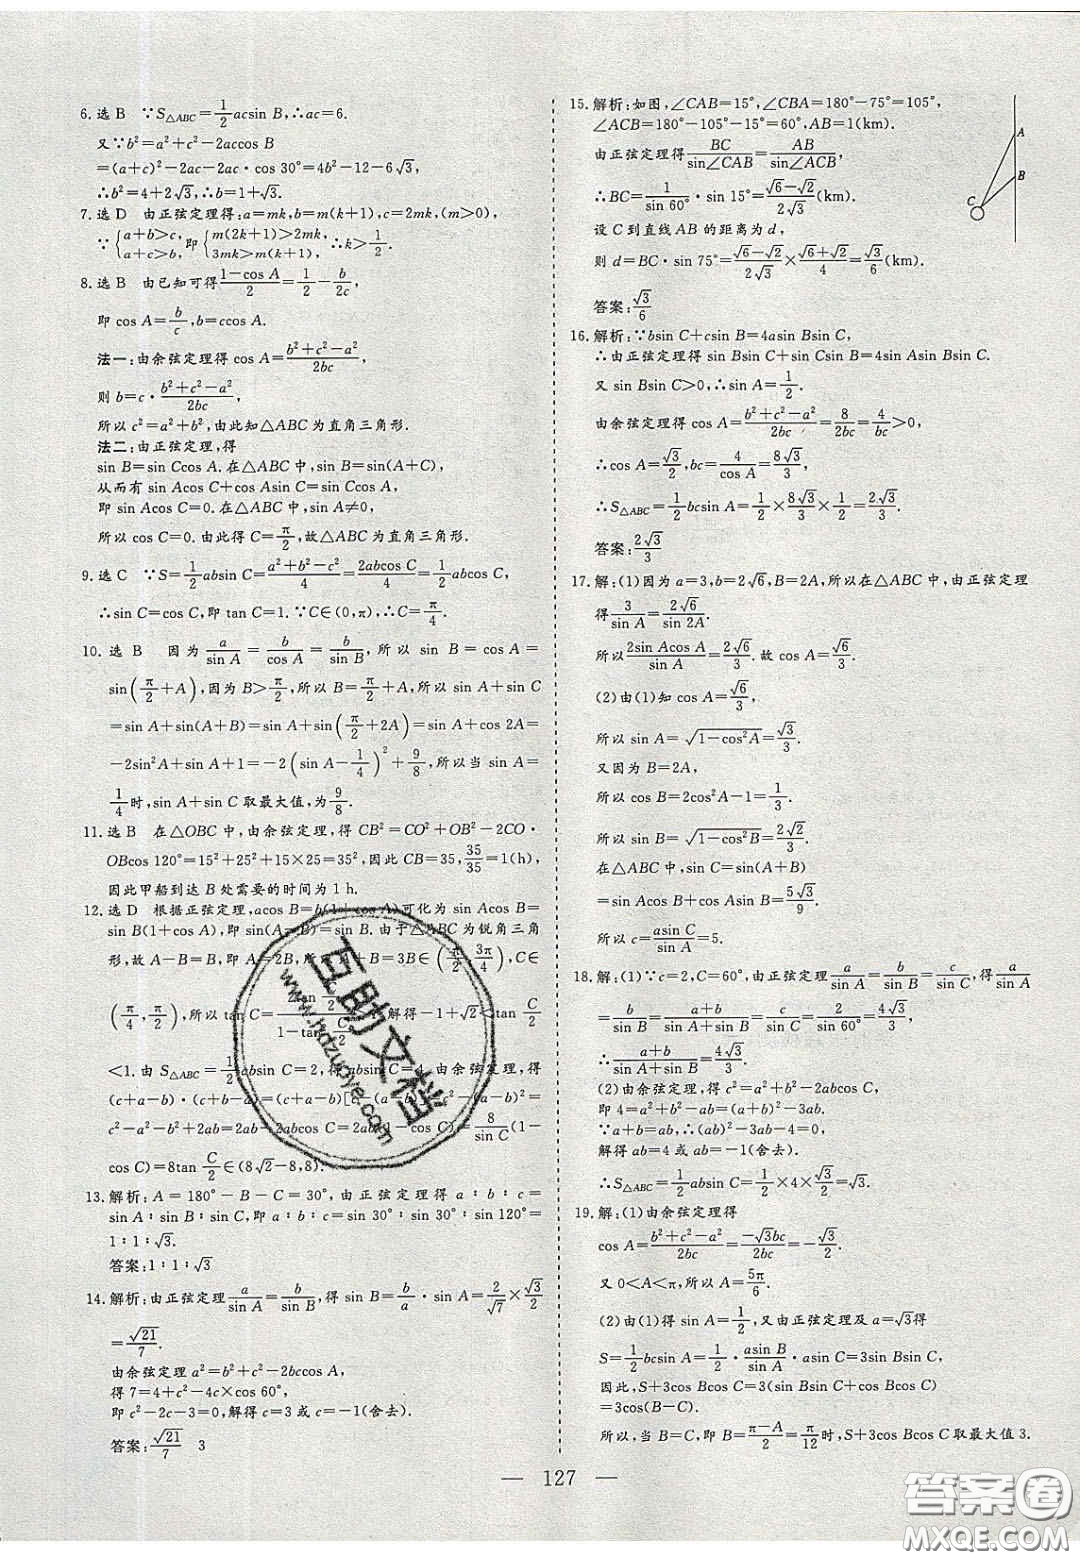 6. 选 B ∵S△ABC=1/2 acsin B,∴ac=6.
又∵b²=a²+c²-2accos B
=(a+c)²-2ac-2ac·cos 30°=4b²-12-6√3,
∴b²=4+2√3,∴b=1+√3.
7. 选 D 由正弦定理得:a=mk,b=m(k+1),c=2mk,(m>0),
∵{a+b>c, a+c>b, 即{m(2k+1)>2mk, 3mk>m(k+1), ∴k>1/2.
8. 选 B 由已知可得(1-cos A)/2=1/2-b/2c,
即 cos A=b/c,b=ccos A.
法一:由余弦定理得 cos A=(b²+c²-a²)/2bc,
则 b=c·(b²+c²-a²)/2bc,
所以 c²=a²+b²,由此知△ABC为直角三角形.
法二:由正弦定理,得
sin B=sin Ccos A.在△ABC中,sin B=sin(A+C),
从而有 sin Acos C+cos Asin C=sin Ccos A,
即 sin Acos C=0.在△ABC中,sin A≠0,
所以 cos C=0.由此得 C=π/2,故△ABC为直角三角形.
9. 选 C ∵S=1/2 absin C=(a²+b²-c²)/4=2abcos C/4=1/2 abcos C,
∴sin C=cos C,即 tan C=1.∵C∈(0,π),∴C=π/4.
10. 选 B 因为 a/sin A=b/cos A=b/sin B,所以 sin B=cos A=
sin(π/2+A),因为 B>π/2,所以 B=π/2+A,所以 sin A+sin C
=sin A+sin(A+B)=sin A+sin(π/2+2A)=sin A+cos 2A=
-2sin²A+sin A+1=-2(sin A-1/4)²+9/8,所以当 sin A=
1/4时,sin A+sin C取最大值,为9/8.
11. 选 B 在△OBC中,由余弦定理,得 CB²=CO²+OB²-2CO·
OBcos 120°=15²+25²+15×25=35²,因此 CB=35,35/35=1(h),
因此甲船到达 B处需要的时间为1 h.
12. 选 D 根据正弦定理,acos B=b(1+cos A)可化为 sin Acos B=
sin B(1+cos A),即 sin(A-B)=sin B.由于△ABC为锐角三角
形,故 A-B=B,A=2B,所以A+B=3B∈(π/2,3π/4),C∈
(π/4,π/2),所以 tan C=2tan C/2/(1-tan² C/2)>1,解得-1+√2<tan C/2
<1.由 S△ABC=1/2 absin C=2,得absin C=4,由余弦定理,得
(c+a-b)·(c+b-a)=(c+a-b)[c-(a-b)]=c²-(a-b)²=
c²-a²-b²+2ab=2ab-2abcos C=2ab(1-cos C)=8/sin C(1-
cos C)=8tan C/2∈(8√2-8,8).
13. 解析:A=180°-B-C=30°,由正弦定理得 a∶b∶c=
sin A∶sin B∶sin C,即 a∶b∶c=sin 30°∶sin 30°∶sin 120°=
1∶1∶√3.
答案:1∶1∶√3
14. 解析:由正弦定理a/sin A=b/sin B,得 sin B=b/a·sin A=2/√7×√3/2
=√21/7.
由余弦定理 a²=b²+c²-2bccos A,
得 7=4+c²-4c×cos 60°,
即 c²-2c-3=0,解得 c=3或 c=-1(舍去).
答案:√21/7 3
15. 解析:如图,∠CAB=15°,∠CBA=180°-75°=105°,
∠ACB=180°-105°-15°=60°,AB=1(km).
由正弦定理得BC/sin∠CAB=AB/sin∠ACB
∴BC=1/sin 60°·sin 15°=(√6-√2)/2√3(km).
设 C到直线 AB的距离为 d,
则 d=BC·sin 75°=(√6-√2)/2√3×(√6+√2)/4=√3/6(km).
答案:√3/6
A
B
C
16. 解析:∵bsin C+csin B=4asin Bsin C,
∴由正弦定理得 sin Bsin C+sin Csin B=4sin Asin Bsin C.
又 sin Bsin C>0,∴sin A=1/2.
由余弦定理得 cos A=(b²+c²-a²)/2bc=8/2bc=4/bc>0,
∴cos A=√3/2,bc=4/cos A=8√3/3,
∴S△ABC=1/2 bcsin A=1/2×8√3/3×1/2=2√3/3.
答案:2√3/3
17. 解:(1)因为 a=3,b=2√6,B=2A,所以在△ABC中,由正弦定理
得3/sin A=2√6/sin 2A.
所以2sin Acos A/sin A=2√6/3.故 cos A=√6/3.
(2)由(1)知 cos A=√6/3,
所以 sin A=√(1-cos²A)=√3/3.
又因为 B=2A,
所以 cos B=2cos²A-1=1/3.
所以 sin B=√(1-cos²B)=2√2/3.
在△ABC中,sin C=sin(A+B)
=sin Acos B+cos Asin B=5√3/9.
所以 c=asin C/sin A=5.
18. 解:(1)∵c=2,C=60°,由正弦定理a/sin A=b/sin B=c/sin C,得a/sin A
=b/sin B=(a+b)/(sin A+sin B)=c/sin C=2/sin 60°=4√3/3,
∴(a+b)/(sin A+sin B)=4√3/3.
(2)由余弦定理,得 c²=a²+b²-2abcos C,
即 4=a²+b²-ab=(a+b)²-3ab,
∵a+b=ab,∴(ab)²-3ab-4=0,
解得 ab=4或 ab=-1(舍去).
∴S△ABC=1/2 absin C=1/2×4×√3/2=√3.
19. 解:(1)由余弦定理得
cos A=(b²+c²-a²)/2bc=-√3bc/2bc=-√3/2.
又 0<A<π,所以 A=5π/6.
(2)由(1)得 sin A=1/2,又由正弦定理及 a=√3得
S=1/2 bcsin A=1/2·asin B/sin A·asin C=3sin Bsin C,
因此,S+3cos Bcos C=3(sin Bsin C+cos Bcos C)
=3cos(B-C).
所以,当 B=C,即 B=(π-A)/2=π/12时,S+3cos Bcos C取最大值 3.
— 127 —
互助文档
www.hdzuoye.com
答案圈
MXQE.COM